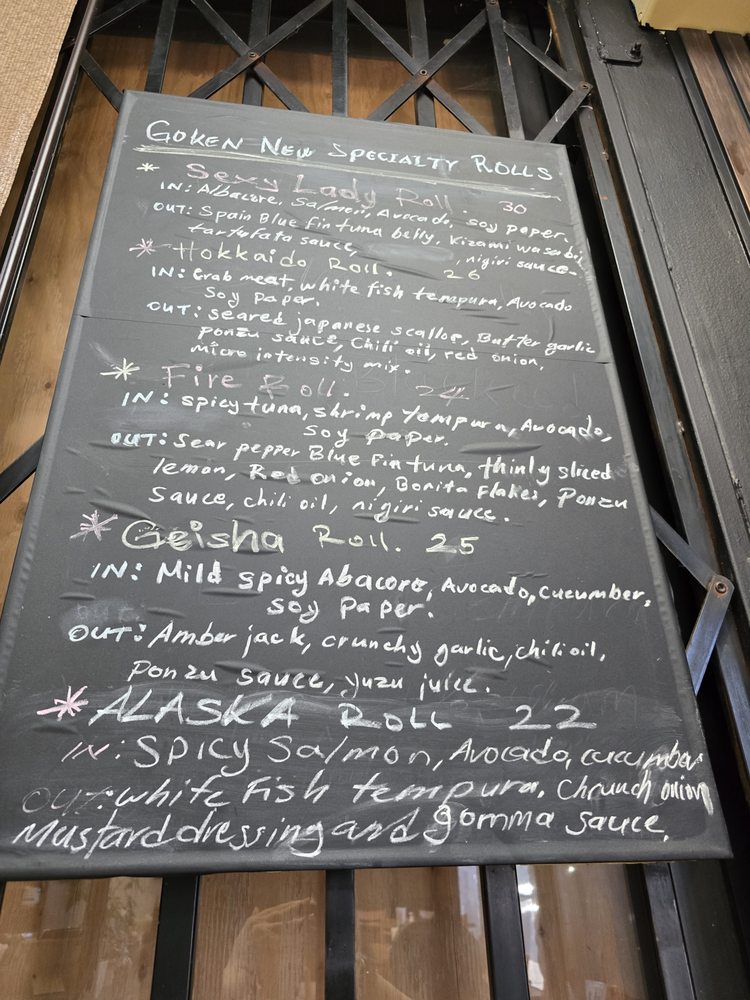 GOKEN NEW SPECIALTY ROLLS.
* Sexy Lady Roll. 30
IN: Albacore, Salmon, Avocado, soy paper.
OUT: Spain Blue fin tuna belly, Kizami wasabi,
tartufata sauce, , nigiri sauce.
* Hokkaido Roll. 26
IN: Crab meat, white fish tempura, Avocado
Soy Paper.
OUT: seared japanese scallop, Butter garlic
Ponzu sauce, Chili oil, red onion,
micro intensity mix.
* Fire Roll. 24
IN: spicy tuna, shrimp tempura, Avocado,
Soy paper.
OUT: Sear pepper Blue Fin tuna, thinly sliced
lemon, Red onion, Bonita Flakes, Ponzu
Sauce, chili oil, nigiri sauce.
* Geisha Roll. 25
IN: Mild spicy Abacore, Avocado, cucumber,
Soy Paper.
OUT: Amber jack, crunchy garlic, chili oil,
Ponzu sauce, yuzu juice.
* ALASKA ROLL 22
IN: SPICY Salmon, Avocado, cucumber
OUT: white Fish tempura, Chrunch onion
Mustard dressing and gomma sauce,